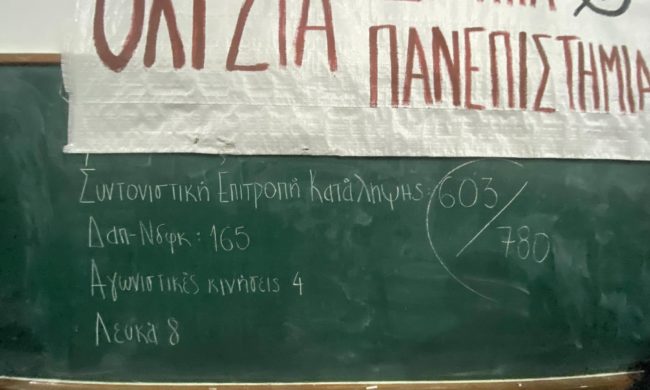 ΟΧΙ ΣΤΑ
ΠΑΝΕΠΙΣΤΗΜΙΑ
Συντονιστική Επιτροπή Κατάληψης: 603/780
Δαπ-Νδφκ: 165
Αγωνιστικές κινήσεις 4
Λευκά 8